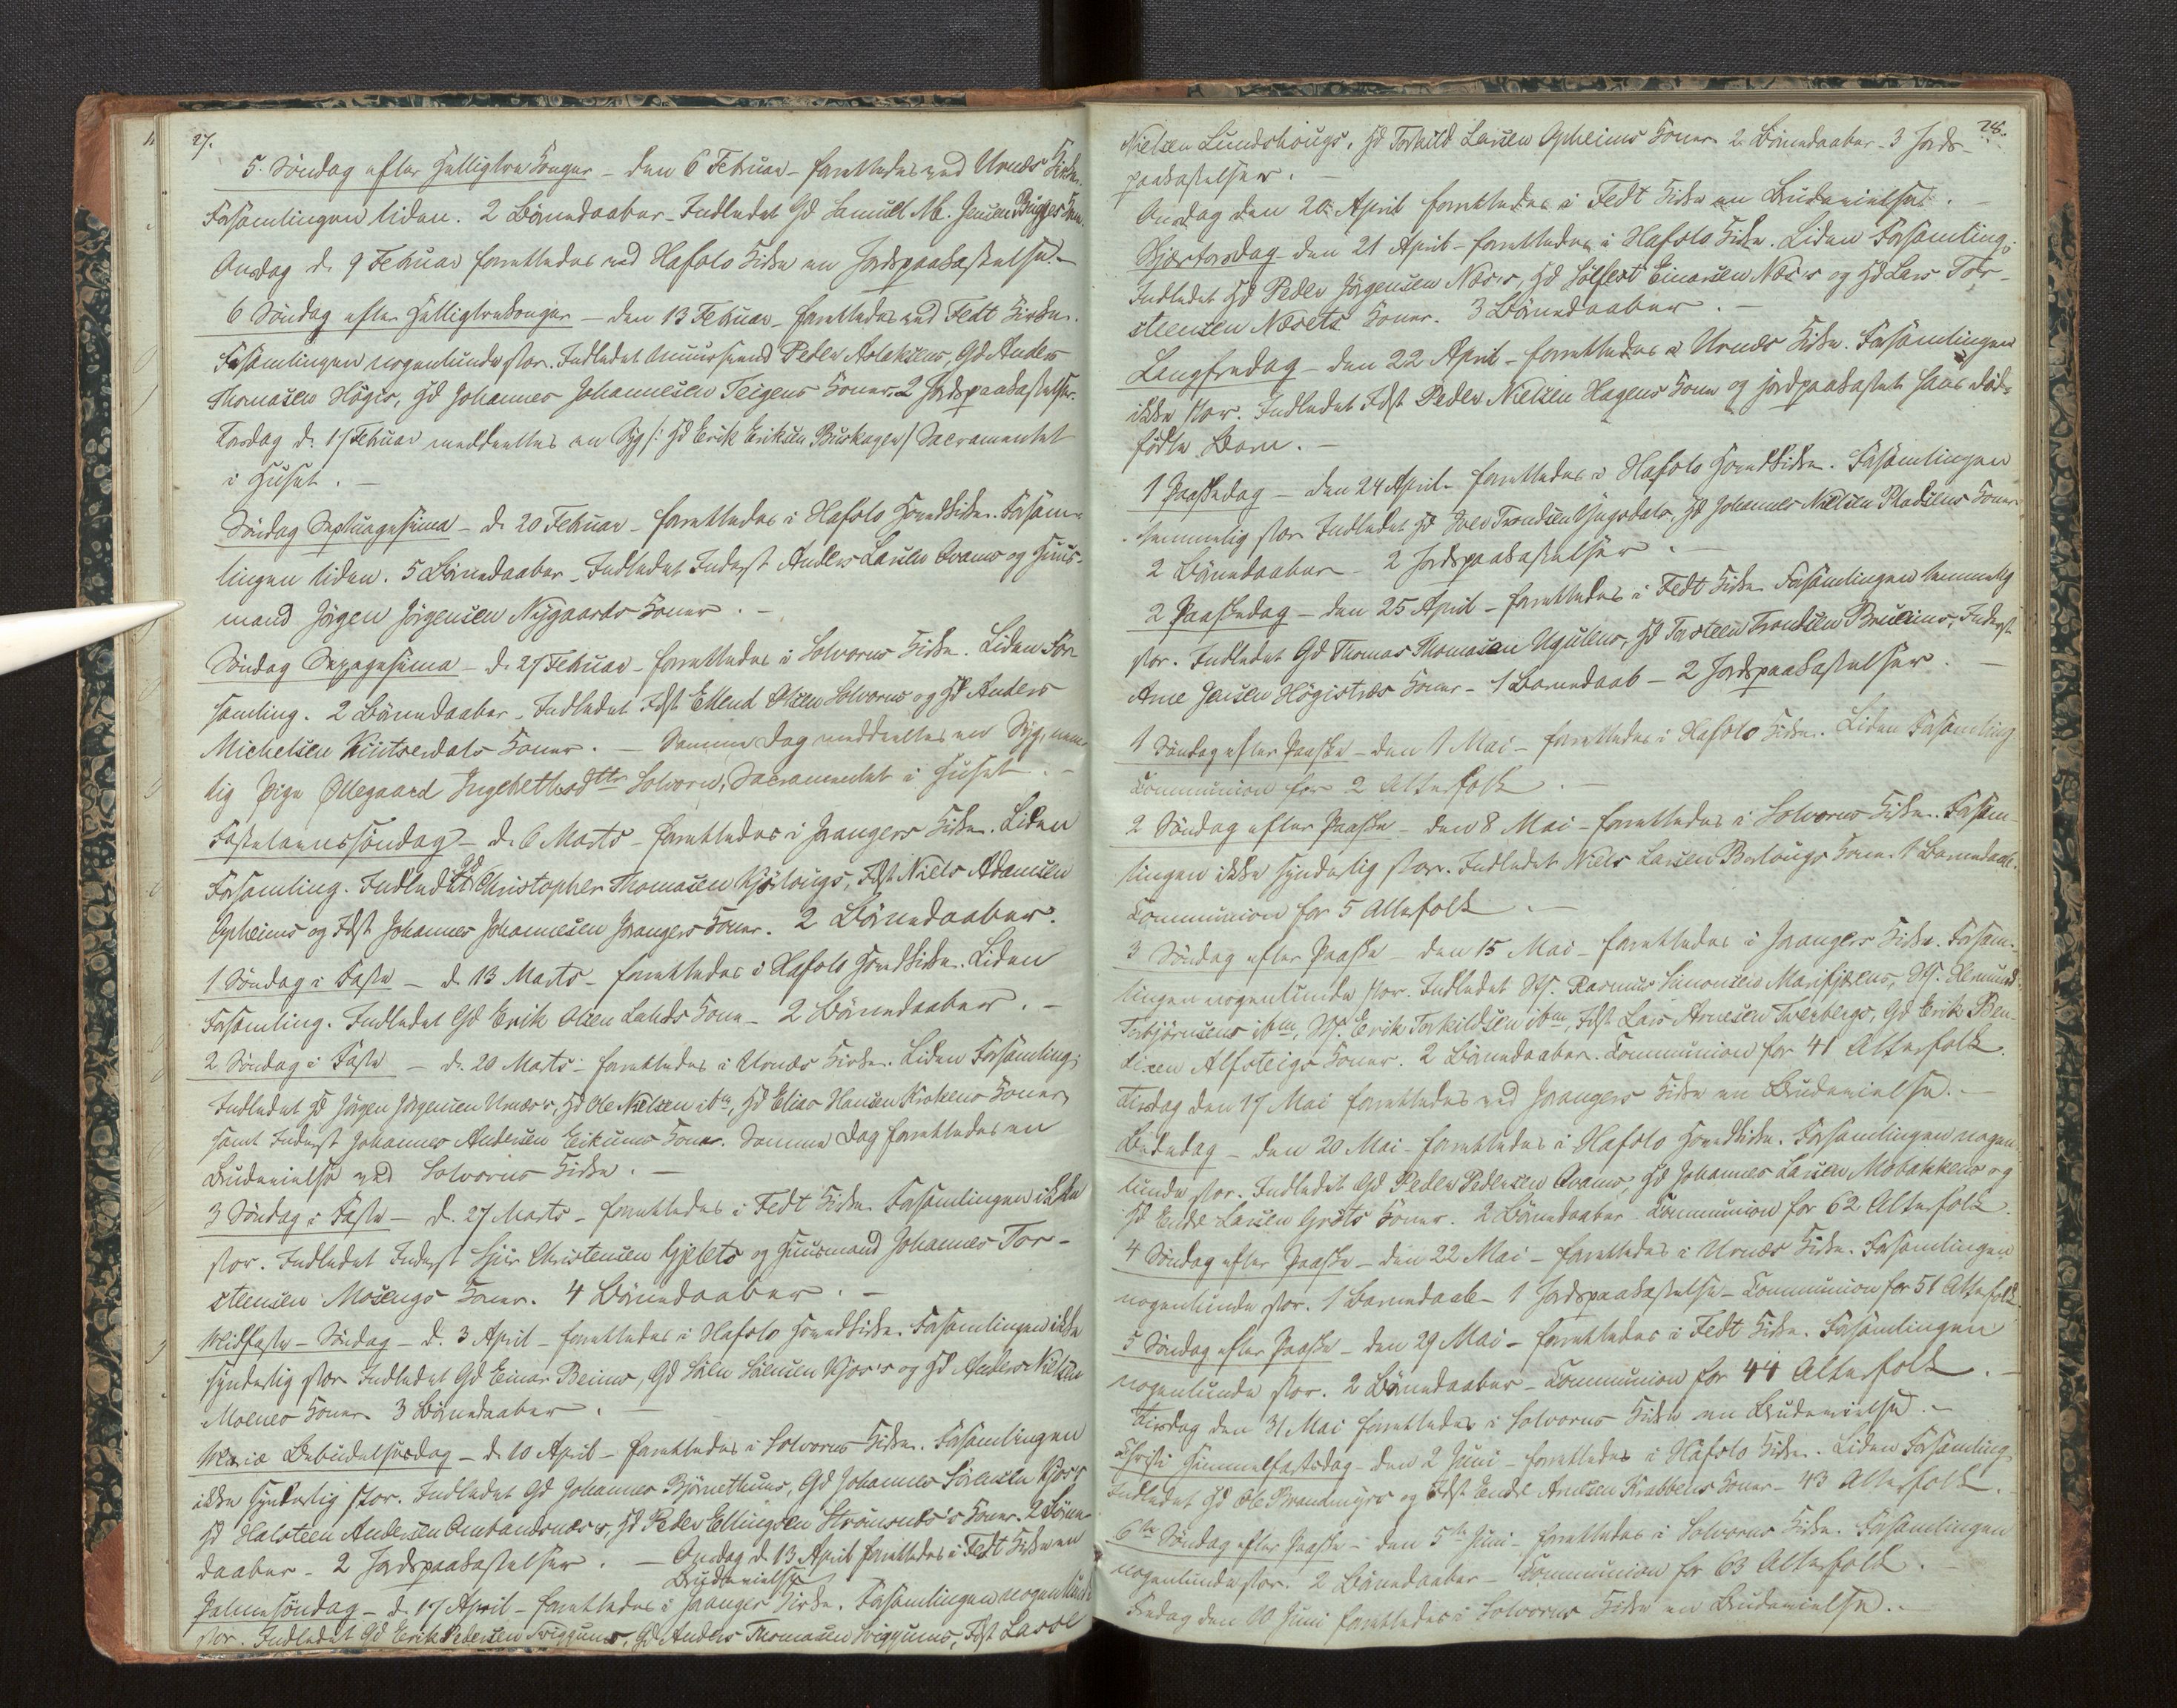 27.
5. Søndag efter Helligtre Konger – den 6 Februar – forrettedes ved Urnæs Kirke.
Forsamlingen liden. 2 Børnedaaber – Indledet Gd Samuel M. Jensen Bugges Kone.
Onsdag d. 9 Februar forrettedes ved Hafslo Kirke en Jordspaakastelse. –
6 Søndag efter Helligtrekonger – den 13 Februar – forrettedes ved Fedt Kirke.
Forsamlingen nogenlunde stor. Indledet Peder Aslaksens, Gd Anders
Thomasen Høgis, Hd Johannes Johannesen Teigens Koner. 2 Jordspaakastelser.
Torsdag d. 17 Februar meddeeltes en Syg /: Hd Erik Eriksen Burhagen / Sacramentet
i Huset. –
Søndag Septuagesima – d. 20 Februar – forrettedes i Hafslo Hovedkirke. Forsam-
lingen liden. 5 Børnedaaber – Indledet Inderst Anders Larsen Qvams og Huus-
mand Jørgen Jørgensen Nygaards Koner. –
Søndag Sexagesima – d. 27 Februar – forrettedes i Solvorns Kirke. Liden For-
samling. 2 Børnedaaber – Indledet Idst Ellend Olsen Solvorns og Hd Anders
Michelsen Koner. – Samme Dag meddeeltes en Syg, nem-
lig Pige Øllegaard Ingebrethsdttr Solvorn, Sacramentet i Huset. –
Fastelavnssøndag – d. 6 Marts – forrettedes i Joranger Kirke. Liden
Forsamling. Indledet Gd Christopher Thomasen Kjørlougs, Idst Niels Adamsen
Opheims og Idst Johannes Johannesen Jorangers Koner. 2 Børnedaaber.
1 Søndag i Faste – d. 13 Marts – forrettedes i Hafslo Hovedkirke. Liden
Forsamling. Indledet Gd Erik Olsen Lahds Kone – 2 Børnedaaber. –
2 Søndag i Faste – d. 20 Marts – forrettedes i Urnæs Kirke. Liden Forsamling;
Indledet Hd Jørgen Jørgensen Urnæs's, Hd Ole Nielsen ibm, Hd Elias Hansen Krokens Koner,
samt Inderst Johannes Andersen Eikums Kone. Samme Dag forrettedes en
Brudevielse ved Solvorns Kirke. –
3 Søndag i Faste – d. 27 Marts – forrettedes i Fedt Kirke. Forsamlingen ikke
stor. Indledet Inderst Sjur Christensen Gjelets og Huusmand Johannes Tor-
steensen Mosengs Koner. 4 Børnedaaber. –
Midfaste-Søndag – d. 3 April – forrettedes i Hafslo Hovedkirke. Forsamlingen ikke
synderlig stor. Indledet Gd Einar Beims, Gd Kjos's og Hd Anders Nielsen
Moenes Koner. 3 Børnedaaber. –
Mariæ Bebudelsesdag – d. 10 April – forrettedes i Solvorns Kirke. Forsamlingen
ikke synderlig stor. Indledet Gd Johannes Bjørnethuns, Gd Johannes Sørensen Kjos's
Hd Halsteen Andersen Ombandsnæs's, Hd Peder Ellingsen Strømsnæs's Koner. 2 Børne-
daaber – 2 Jordspaakastelser. – Onsdag d. 13 April forrettedes i Fedt Kirke en
Brudevielse
Palmesøndag – d. 17 April – forrettedes i Joranger Kirke. Forsamlingen nogenlunde
stor. Indledet Gd Erik Pedersen Svigzums, Gd Anders Thomasen Svigzums, Idst Lasse
28.
Nielsen Lundshougs, Hd Torkild Larsen Opheims Koner. 2 Børnedaaber – 3 Jords-
paakastelser. –
Onsdag den 20 April forrettedes i Fedt Kirke en Brudevielse. –
Skjærtorsdag den 21 April – forrettedes i Hafslo Kirke. Liden Forsamling;
Indledet Hd Peder Jørgensen Næs's, Hd Solfest Einarsen Næs's og Hd Lars Tor-
steensen Næsets Koner. 3 Børnedaaber. –
Langfredag – den 22 April – forrettedes i Urnæs Kirke. Forsamlingen
ikke stor. Indledet Idst Peder Nielsen Hagens Kone og jordpaakastet hans død-
fødte Barn. –
1 Paaskedag – den 24 April – forrettedes i Hafslo Hovedkirke. Forsamlingen
temmelig stor. Indledet Hd Iver Trondsen, Hd Johannes Nielsen Pladsens Koner
2 Børnedaaber – 2 Jordspaakastelser. –
2 Paaskedag – den 25 April – forrettedes i Fedt Kirke. Forsamlingen temmelig
stor. Indledet Gd Thomas Thomasen Ugulens, Hd Torsteen Trondsen Bruheims, Inderst
Arne Jensen Høgistræs Koner – 1 Barnedaab – 2 Jordspaakastelser. –
1 Søndag efter Paaske – den 1 Mai – forrettedes i Hafslo Kirke. Liden Forsamling
Communion for 2 Alterfolk. –
2 Søndag efter Paaske – den 8 Mai – forrettedes i Solvorns Kirke. Forsam-
lingen ikke synderlig stor. Indledet Niels Larsen Berlougs Kone. 1 Barnedaab.
Communion for 5 Alterfolk. –
3 Søndag efter Paaske – den 15 Mai – forrettedes i Jorangers Kirke. Forsam-
lingen nogenlunde stor. Indledet Rasmus Simonsen Marifjærens,
Torbjørnsens ibm, Erik Torkildsen ibm, Idst Lars Arnesen Tverbergs, Gd Erik Ben-
dixen Alfsteigs Koner. 2 Børnedaaber. Communion for 41 Alterfolk.
Tirsdag den 17 Mai forrettedes ved Jorangers Kirke en Brudevielse. –
Bededag – den 20 Mai – forrettedes i Hafslo Hovedkirke. Forsamlingen nogen-
lunde stor. Indledet Gd Peder Pedersen Qvams, Hd Johannes Larsen Mobakkens og
Hd Endre Larsen Grøts Koner. 2 Børnedaaber – Communion for 62 Alterfolk.
4 Søndag efter Paaske – den 22 Mai – forrettedes i Urnæs Kirke. Forsamlingen
nogenlunde stor. 1 Barnedaab – 1 Jordspaakastelse – Communion for 51 Alterfolk.
5 Søndag efter Paaske – den 29 Mai – forrettedes i Fedt Kirke. Forsamlingen
nogenlunde stor. 2 Børnedaaber – Communion for 44 Alterfolk. –
Tirsdag den 31 Mai forrettedes i Solvorns Kirke en Brudevielse. –
Christi Himmelfartsdag – den 2 Juni – forrettedes i Hafslo Kirke. Liden Forsamling,
Indledet Hd Ole Brandmyrs og Idst Endre Andersen Krabbens Koner – 43 Alterfolk. –
6te Søndag efter Paaske – den 5te Juni – forrettedes i Solvorns Kirke. Forsamlingen
nogenlunde stor. 2 Børnedaaber – Communion for 63 Alterfolk. –
Fredag den 10 Juni forrettedes i Solvorns Kirke en Brudevielse. –